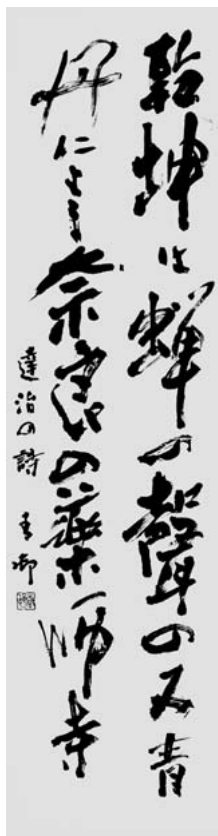 乾坤は蝉の聲の又青
丹仁よし奈良の薬師寺
達治の詩